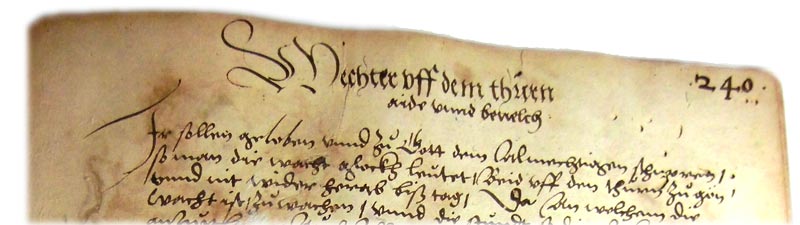 Wechter vff dem thurn
240
aide vnnd bevelch
Ir sollen geloben vnnd zu Gott dem Allmechtigen schweren,
so man die wacht glockh leutet, Beid vff den thurn zu gon,
vnnd nit wider herab biß tag, Da An welchem die
wacht ist, zu wachen, vnnd die stundt